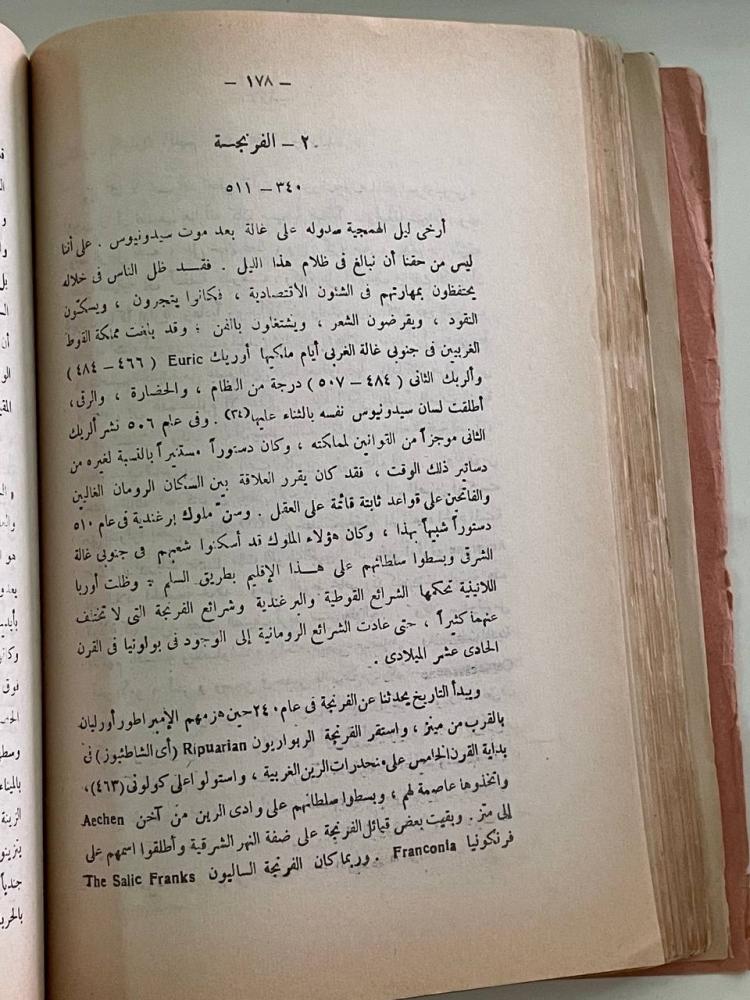 — ١٧٨ —
٢ — الفرنجسة
٣٤٠ — ٥١١
أرخى ليل الهمجية سدوله على غالة بعد موت سيدونيوس . على أننا
ليس من حقنا أن نبالغ فى ظلام هذا الليل . فقد ظل الناس فى خلاله
يحتفظون بمهارتهم فى الشئون الاقتصادية ، فكانوا يتجرون ، ويسكون
النقود ، ويقرضون الشعر ، ويشتغلون بالفن ؛ وقد بلغت مملكة القوط
الغربيين فى جنوبى غالة الغربى أيام ملكيها أوريك Euric ( ٤٦٦ – ٤٨٤ )
وألريك الثانى ( ٤٨٤ – ٥٠٧ ) درجة من النظام ، والحضارة ، والرقى ،
أطلقت لسان سيدونيوس نفسه بالثناء عليها(٣٤) . وفى عام ٥٠٦ نشر ألريك
الثانى موجزاً من القوانين لمملكته ، وكان دستوراً مستنيراً بالنسبة لغيره من
دساتير ذلك الوقت ، فقد كان يقرر العلاقة بين السكان الرومان الغاليين
والفاتحين على قواعد ثابتة قائمة على العقل . وسن ملوك برغندية فى عام ٥١٠
دستوراً شبيهاً بهذا ، وكان هؤلاء الملوك قد أسكنوا شعبهم فى جنوبى غالة
الشرقى وبسطوا سلطانهم على هـذا الإقليم بطريق السلم . وظلت أوربا
اللاتينية تحكمها الشرائع القوطية والبرغندية وشرائع الفرنجة التى لا تختلف
عنهما كثيراً ، حتى عادت الشرائع الرومانية إلى الوجود فى بولونيا فى القرن
الحادى عشر الميلادى .
ويبدأ التاريخ يحدثنا عن الفرنجة فى عام ٢٤٠ حين هزمهم الإمبراطور أورليان
بالقرب من مينز ، واستقر الفرنجة الربواريون Ripuarian (أى الشاطئيوز) فى
بداية القرن الخامس على منحدرات الرين الغربية ، واستولوا على كولونى (٤٦٣) ،
واتخذوها عاصمة لهم ، وبسطوا سلطانهم على وادى الرين من آخن Aechen
إلى متز . وبقيت بعض قبائل الفرنجة على ضفة النهر الشرقية وأطلقوا اسمهم على
فرنكونيا Franconia . وربما كان الفرنجة الساليون The Salic Franks